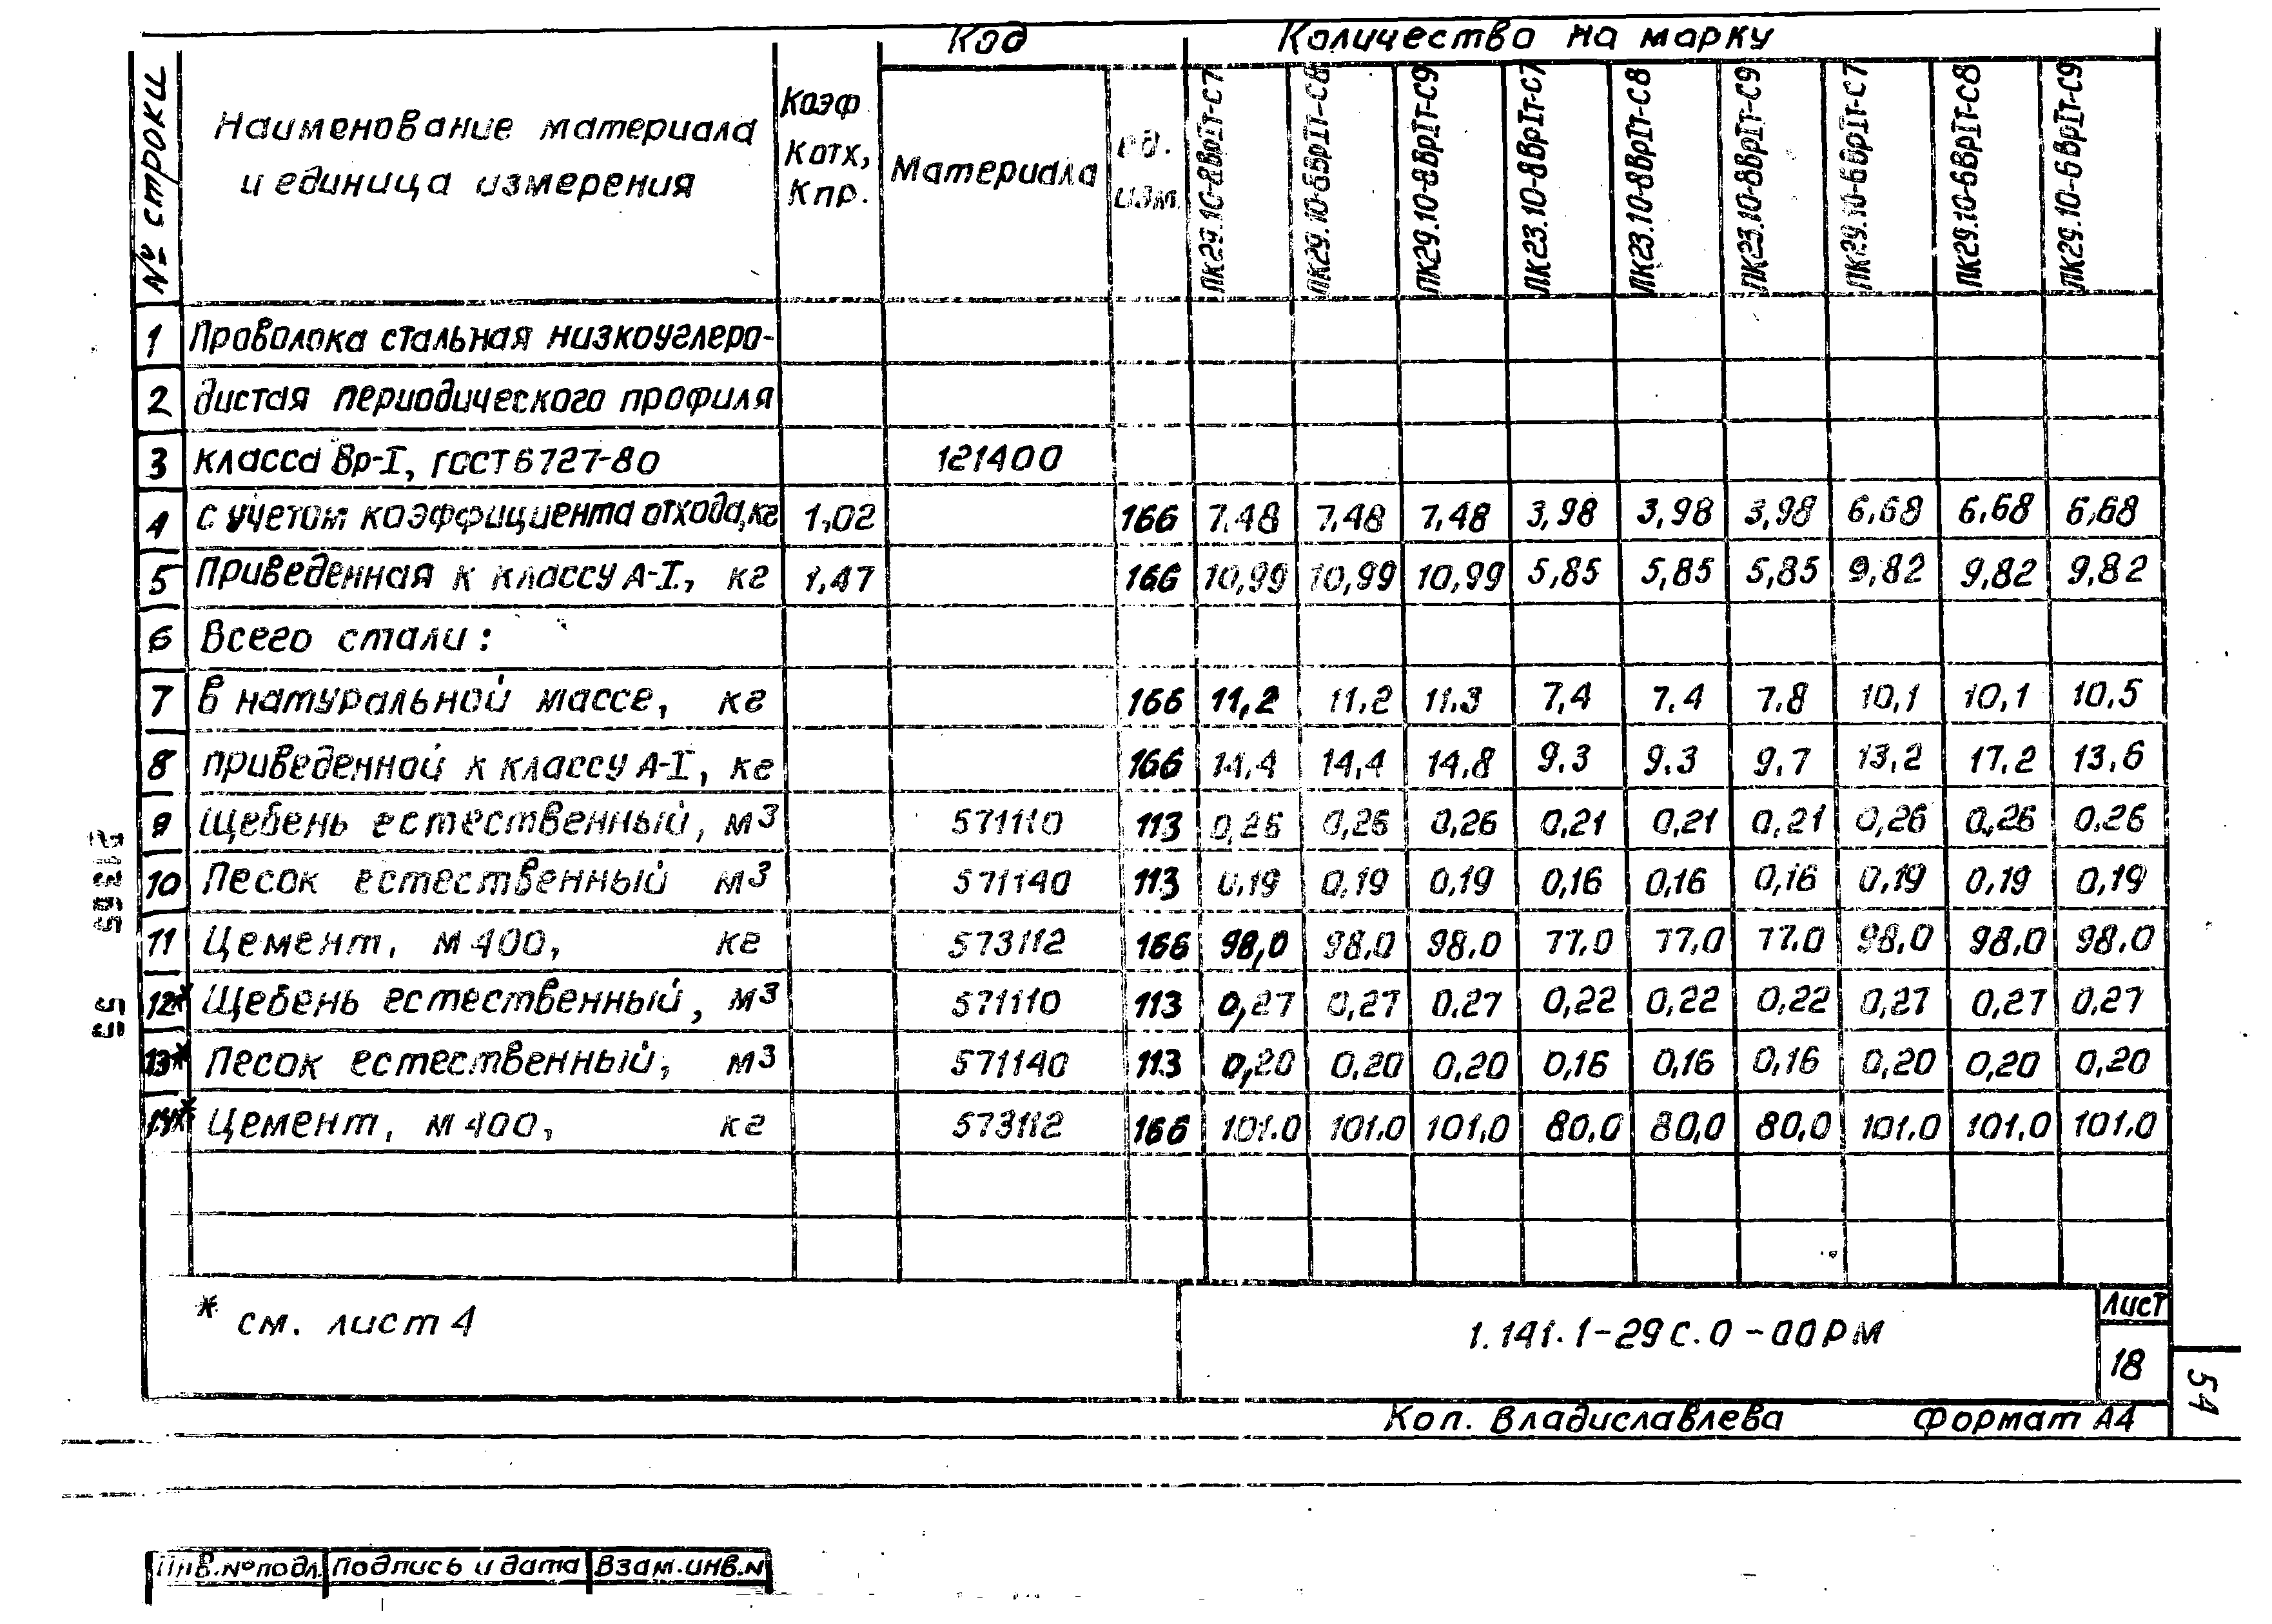 Код Количество на марку
№ строки Наименование материала и единица измерения Коэф Котх, Кпр. Материала ед. изм. ПК29.10-8ВрIт-С7 ПК29.10-8ВрIт-С8 ПК29.10-8ВрIт-С9 ПК23.10-8ВрIт-С7 ПК23.10-8ВрIт-С8 ПК23.10-8ВрIт-С9 ПК29.10-6ВрIт-С7 ПК29.10-6ВрIт-С8 ПК29.10-6ВрIт-С9
1 Проволока стальная низкоуглеро-
2 дистая периодического профиля
3 класса Вр-I, ГОСТ 6727-80 121400
4 с учетом коэффициента отхода, кг 1,02 166 7,48 7,48 7,48 3,98 3,98 3,98 6,68 6,68 6,68
5 Приведенная к классу А-I, кг 1,47 166 10,99 10,99 10,99 5,85 5,85 5,85 9,82 9,82 9,82
6 Всего стали:
7 в натуральной массе, кг 166 11,2 11,2 11,3 7,4 7,4 7,8 10,1 10,1 10,5
8 приведенной к классу А-I, кг 166 14,4 14,4 14,8 9,3 9,3 9,7 13,2 17,2 13,6
9 Щебень естественный, м3 571110 113 0,26 0,26 0,26 0,21 0,21 0,21 0,26 0,26 0,26
10 Песок естественный м3 571140 113 0,19 0,19 0,19 0,16 0,16 0,16 0,19 0,19 0,19
11 Цемент, М400, кг 573112 166 98,0 98,0 98,0 77,0 77,0 77,0 98,0 98,0 98,0
12* Щебень естественный, м3 571110 113 0,27 0,27 0,27 0,22 0,22 0,22 0,27 0,27 0,27
13* Песок естественный, м3 571140 113 0,20 0,20 0,20 0,16 0,16 0,16 0,20 0,20 0,20
14* Цемент, М400, кг 573112 166 101,0 101,0 101,0 80,0 80,0 80,0 101,0 101,0 101,0
* см. лист 4
1.141.1-29с.0-00РМ
Лист
18
54
Коп. Владиславлева Формат А4
21365 55
Инв.№ подл. Подпись и дата Взам.инв.N